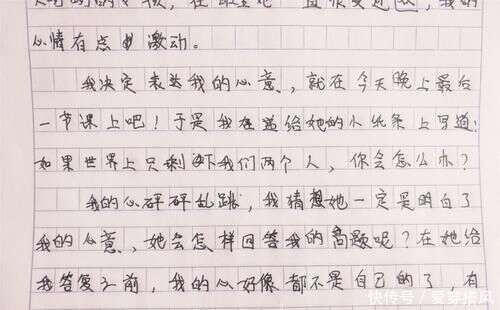 我的
心情有点激动。
我决定表达我的心意，就在今天晚上最后
一节课上吧！于是我在送给她的小纸条上写道：
如果世界上只剩下我们两个人，你会怎么办？
我的心砰砰乱跳，我猜想她一定是明白了
我的心意，她会怎样回答我的问题呢？在她给
我答复之前，我的心好像都不是自己的了，有
快传号／爱芽振风